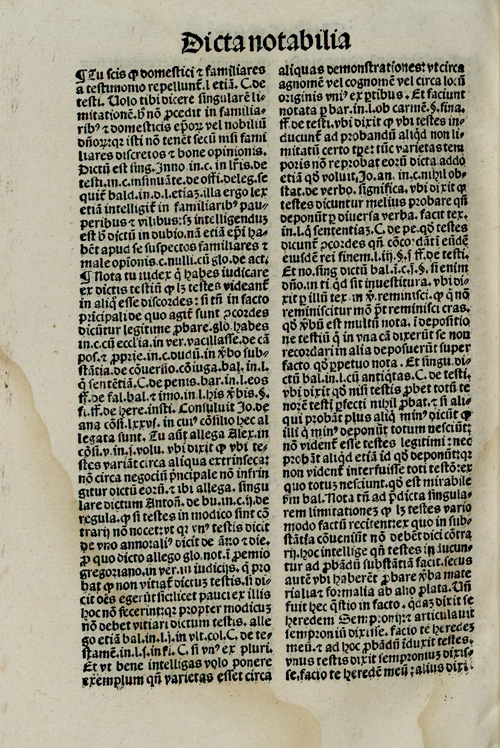 Dicta notabilia
¶ Tu scis ꝙ domestici ⁊ familiares
a testimonio repellunt̃.l. etiã. C. de
testi. Uolo tibi dicere singularẽ li-
mitationẽ.ꝙ nõ ꝓcedit in familia-
ribꝰ ⁊ domesticis epõꝝ vel nobiliũ
dñoꝝ:qꝛ isti nõ tenẽt secũ nisi fami
liares discretos ⁊ bone opinionis.
Dictũ est sing. Inno. in c. in lr̃is. de
testi. in.c. insinuãte. de offi. deleg. se
quit̃ bald. in.d.l.etiaʒ. illa ergo lex
etiã intelligit̃ in familiaribꝰ pau-
peribus ⁊ vilibus: sʒ intelligendus
est ꝙ dictũ in dubio. nã etiã ep̃i ha-
bẽt apud se suspectos familiares ⁊
male opionis. c. nulli. cũ glo. de act.
¶ Nota tu iudex ꝗ habes iudicare
ex dictis testiũ ꝙ lʒ testes videant̃
in aliq̃ esse discordes: si tñ in facto
pꝛicipali de quo agit̃ sunt ꝓcordes
dicũtur legitime ꝓbare. glo. habes
in. c. cũ ecclia. in ver. vacillasse. de cã
pos. ⁊ ꝓprie. in c. dudũ. in ꝟbo sub-
stãtia. de cõuersio. cõiuga. bal. in. l.
ꝗ sentẽtiã. C. de penis. bar. in. l. eos
ff. de fal. bal. ⁊ imo. in. l. his ꝟbis. §.
fi. ff. de here. insti. Consuluit Jo. de
ana cõsi. lxxvi. in cuiꝰ cõsilio hec al
legata sunt. Tu aũt allega Alex. in
cõsi. v. in. j. volu. vbi dixit ꝙ vbi te-
stes variãt circa aliqua extrinseca:
nõ circa negociũ pñcipale nõ infrin
gitur dictũ eoꝝ. ⁊ ibi allega. singu
lare dictum Antoñ. de bu. in. c. ij. de
regula. ꝙ si testes in modico sint cõ
trarij nõ nocet: vt qꝛ vnꝰ testis dicit
de vno annorali dicit de ãno. ⁊ die.
ꝓ quo dicto allego glo. not. ĩ ꝓemio
gregoriano. in ver. in iudicijs. ꝗ pro
bat ꝙ non vitiat̃ dictuʒ testis. si di-
cit oẽs egerũt: si licet pauci ex illis
hoc nõ fecerint: qꝛ propter modicuʒ
nõ debet vitiari dictum testis. alle
go etiã bal. in. l. j. in vlt. col. C. de te-
stamẽ. in. l. j. in fi. C. si vnꝰ ex pluri.
Et vt bene intelligas volo ponere
exemplum qñ varietas esset circa
aliquas demonstrationes: vt circa
agnomẽ vel cognomẽ vel circa locũ
originis vniꝰ ex ptibus. Et faciunt
notata ꝑ bar. in. l. ob carmẽ. §. fina.
ff. de testi. vbi dixit ꝙ vbi testes in-
ducunt̃ ad probandũ aliqd non li-
mitatũ certo tꝑe: tũc varietas tem
poris nõ reprobat eoꝝ dicta. addo
etiã qõ voluit. Jo. an. in. c. nihil ob-
stat. de verbo. significa. vbi dixit ꝙ
testes dicuntur melius probare qñ
deponũt ꝑ diuersa verba. facit tex.
in. l. ꝗ sentẽtiaʒ. C. de pe. qõ testes
dicunt̃ ꝓcordes qñ cõcordãt ĩ eũdẽ
eiusdẽ rei finem. l. iij. §. j. ff. de testi.
Et no. sing dictũ bal. ĩ. c. j. §. si enim
dño. in ti. qd sit inuestitura. vbi di-
xit ꝑ illũ tex. in ꝟ. reminisci. ꝙ ꝗ nõ
reminiscitur mõ pt̃ reminisci cras.
qõ ꝟbũ est multũ nota. ĩ depositio
ne testiũ ꝗ in vna cã dixerũt se non
recordari in alia deposuerũt super
facto qõ ꝑpetuo nota. Et singu. di-
ctũ bal. in. l. cũ antiq̃tas. C. de testa.
vbi dixit qõ nisi testis ꝓbet totũ te
norẽ testi ꝑfecti nihil ꝓbat. ⁊ si ali-
qui probãt plus aliq̃ minꝰ dicũt ꝙ
illi ꝗ minꝰ deponũt totum nesciũt:
nõ vident̃ esse testes legitimi: nec
probãt aliqd etiã id qõ deponũt: qꝛ
non vident̃ interfuisse toti testõ: ex
quo totuʒ nesciunt. qõ est mirabile
ẜm bal. Nota tñ ad p̃dicta singula-
rem limitationeʒ ꝙ lʒ testes vario
modo factũ recitent: ex quo in sub-
stãtia cõueniũt nõ debẽt dici cõtra
rij. hoc intellige qñ testes inducun-
tur ad ꝓbandũ substãtiã facti. secus
autẽ vbi haberẽt ꝓbare ꝟba mate
rialia ⁊ formalia ab alio plata. Un̄
fuit hec q̃stio in facto. qdaʒ dixit se
heredem Sempronij: ⁊ articulauit
semproniũ dixisse. facio te heredeʒ
meũ. ⁊ ad hoc ꝓbãdũ iduxit testes.
vnus testis dixit semproniũʒ dixis-
se. facio te heredẽ meũ: alius dixi-